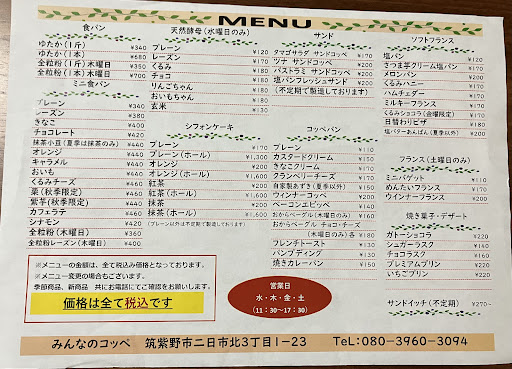 MENU
食パン
ゆたか(1斤) ¥340
ゆたか(1本) ¥680
全粒粉(1斤)木曜日 ¥350
全粒粉(1本)木曜日 ¥700
ミニ食パン
プレーン ¥340
レーズン ¥380
きなこ ¥400
チョコレート ¥420
抹茶小豆(夏季は抹茶のみ) ¥440
オレンジ ¥440
キャラメル ¥440
おいも ¥460
くるみチーズ ¥460
栗(秋季限定) ¥460
紫芋(秋季限定) ¥440
カフェラテ ¥460
シナモン ¥420
全粒粉(木曜日) ¥360
全粒粉レーズン(木曜日) ¥400
天然酵母(水曜日のみ)
プレーン ¥120
レーズン ¥170
くるみ ¥180
チョコ ¥180
りんごちゃん ¥180
おいもちゃん ¥180
玄米 ¥130
シフォンケーキ
プレーン ¥170
プレーン(ホール) ¥1,300
オレンジ ¥200
オレンジ(ホール) ¥1,600
紅茶 ¥200
紅茶(ホール) ¥1,600
抹茶 ¥200
抹茶(ホール) ¥1,600
(プレーン以外は不定期で製造しております)
サンド
タマゴサラダ サンドコッペ
ツナ サンドコッペ
パストラミ サンドコッペ
塩パンフレッシュサンド
(不定期で製造しております)
コッペパン
プレーン ¥110
カスタードクリーム ¥150
きなこクリーム ¥150
クランベリーチーズ ¥170
自家製あずき(夏季以外) ¥150
ウィンナーコッペ ¥190
ベーコンエピッペ ¥190
おからベーグル(木曜日のみ) ¥160
おからベーグル チョコ・チーズ
(木曜日のみ)各 ¥180
フレンチトースト ¥130
パンプディング ¥130
焼きカレーパン ¥150
ソフトフランス
塩パン ¥120
さつま芋クリーム塩パン
メロンパン
くるみハニー ¥170
ハムチェダー
ミルキーフランス
くるみショコラ(金曜限定)
日替わりピザ
塩バターあんぱん(夏季以外) ¥200
フランス(土曜日のみ)
ミニバゲット ¥110
めんたいフランス ¥170
ウインナーフランス ¥200
焼き菓子・デザート
ガトーショコラ ¥220
シュガーラスク
チョコラスク ¥160
プレミアムプリン ¥220
いちごプリン ¥220
サンドイッチ(不定期) ¥270~
※メニューの金額は、全て税込み価格となっております。
※メニュー変更の場合もございます。
季節商品、新商品 共にお電話にてご確認をお願いします。
価格は全て税込です
営業日
水・木・金・土
(11:30~17:30)
みんなのコッペ 筑紫野市二日市北3丁目1-23 TeL:080-3960-3094